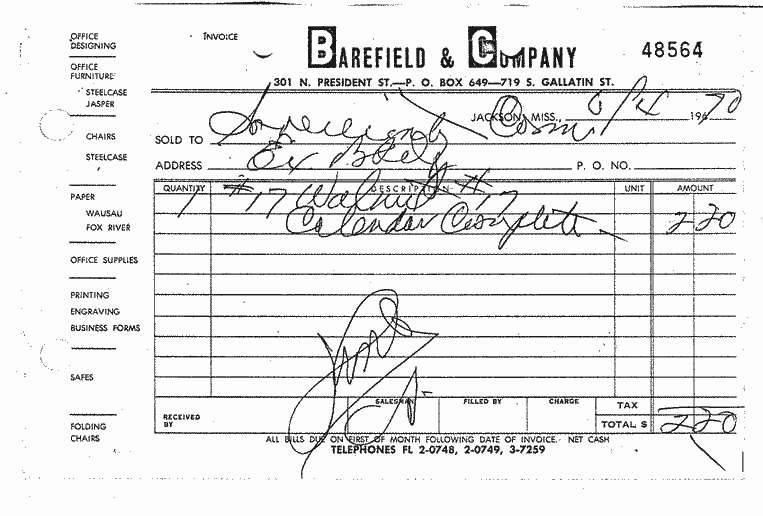 INVOICE
BAREFIELD & COMPANY
48564
301 N. PRESIDENT ST.—P. O. BOX 649—719 S. GALLATIN ST.
JACKSON, MISS., 1970
SOLD TO Sovereignty Comm
ADDRESS P. O. NO.
QUANTITY DESCRIPTION UNIT AMOUNT
1 #17 Walnut #17
Calendar Complete 220
SALESMAN FILLED BY CHARGE TAX
RECEIVED BY
TOTAL $ 220
ALL BILLS DUE ON FIRST OF MONTH FOLLOWING DATE OF INVOICE. NET CASH
TELEPHONES FL 2-0748, 2-0749, 3-7259
OFFICE
DESIGNING
OFFICE
FURNITURE
STEELCASE
JASPER
CHAIRS
STEELCASE
PAPER
WAUSAU
FOX RIVER
OFFICE SUPPLIES
PRINTING
ENGRAVING
BUSINESS FORMS
SAFES
FOLDING
CHAIRS